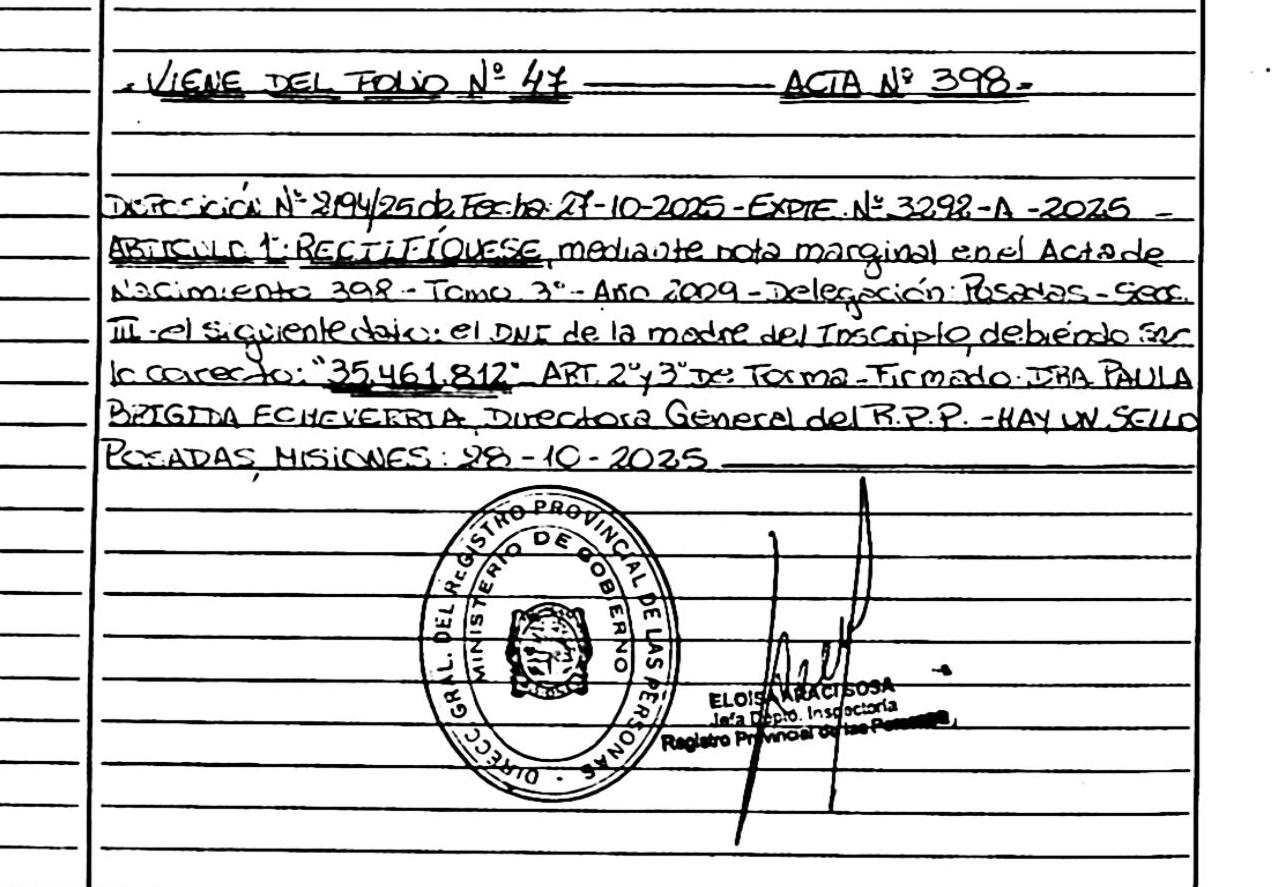 - VIENE DEL FOLIO Nº 47 ——— ACTA Nº 398 -
DISPOSICIÓN Nº 2194/25 de Fecha: 27-10-2025 - EXPTE. Nº 3292-A-2025 -
ARTICULO 1º: RECTIFÍQUESE, mediante nota marginal en el Acta de
Nacimiento 398 - Tomo 3º - Año 2009 - Delegación: Posadas - Secc.
III - el siguiente dato: el DNI de la madre del Inscripto, debiéndo ser
lo correcto: "35.461.812" ART. 2º y 3º De Forma - Firmado: DRA. PAULA
BRIGIDA ECHEVERRIA, Directora General del R.P.P. - HAY UN SELLO
POSADAS, MISIONES: 28-10-2025
DIRECC. GRAL. DEL REGISTRO PROVINCIAL DE LAS PERSONAS -
MINISTERIO DE GOBIERNO
ELOISA ARACI SOSA
Jefa Depto. Inspectoría
Registro Provincial de las Personas